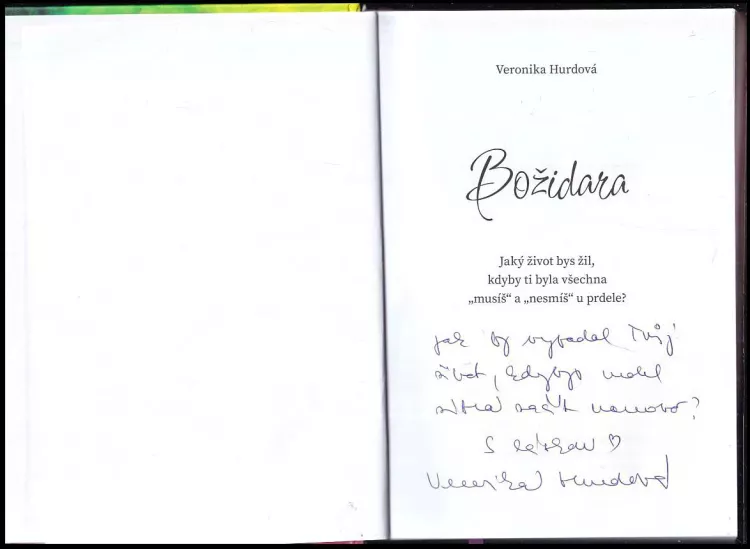 Veronika Hurdová
Božidara
Jaký život bys žil,
kdyby ti byla všechna
„musíš“ a „nesmíš“ u prdele?
Jak by vypadal Tvůj
život, kdybys mohl
zítra začít nanovo?
S láskou ♡
Veronika Hurdová